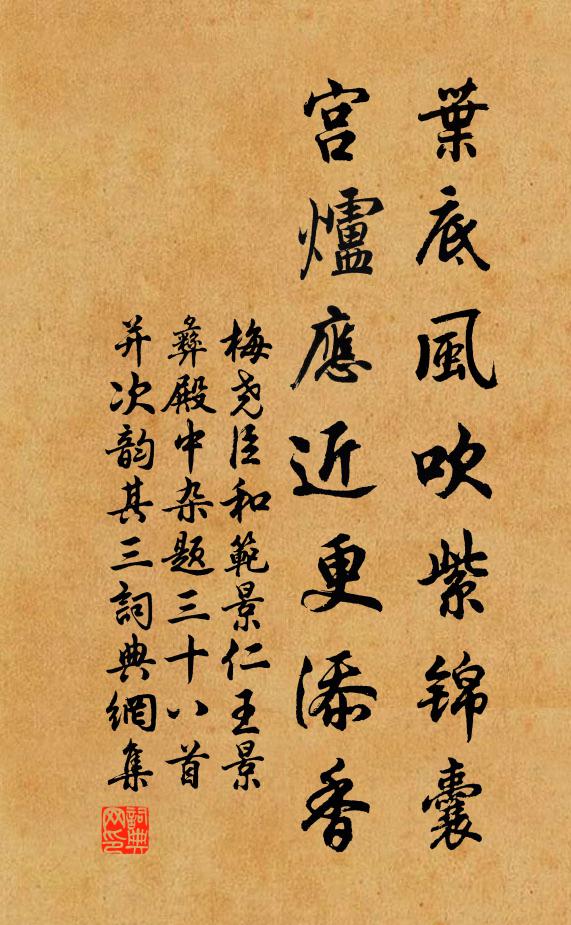 葉底風吹紫錦囊
宫爐應近更添香
梅尧臣和範景仁王景
彝殿中杂题三十八首
并次韵其三詞典網集
詞典网印